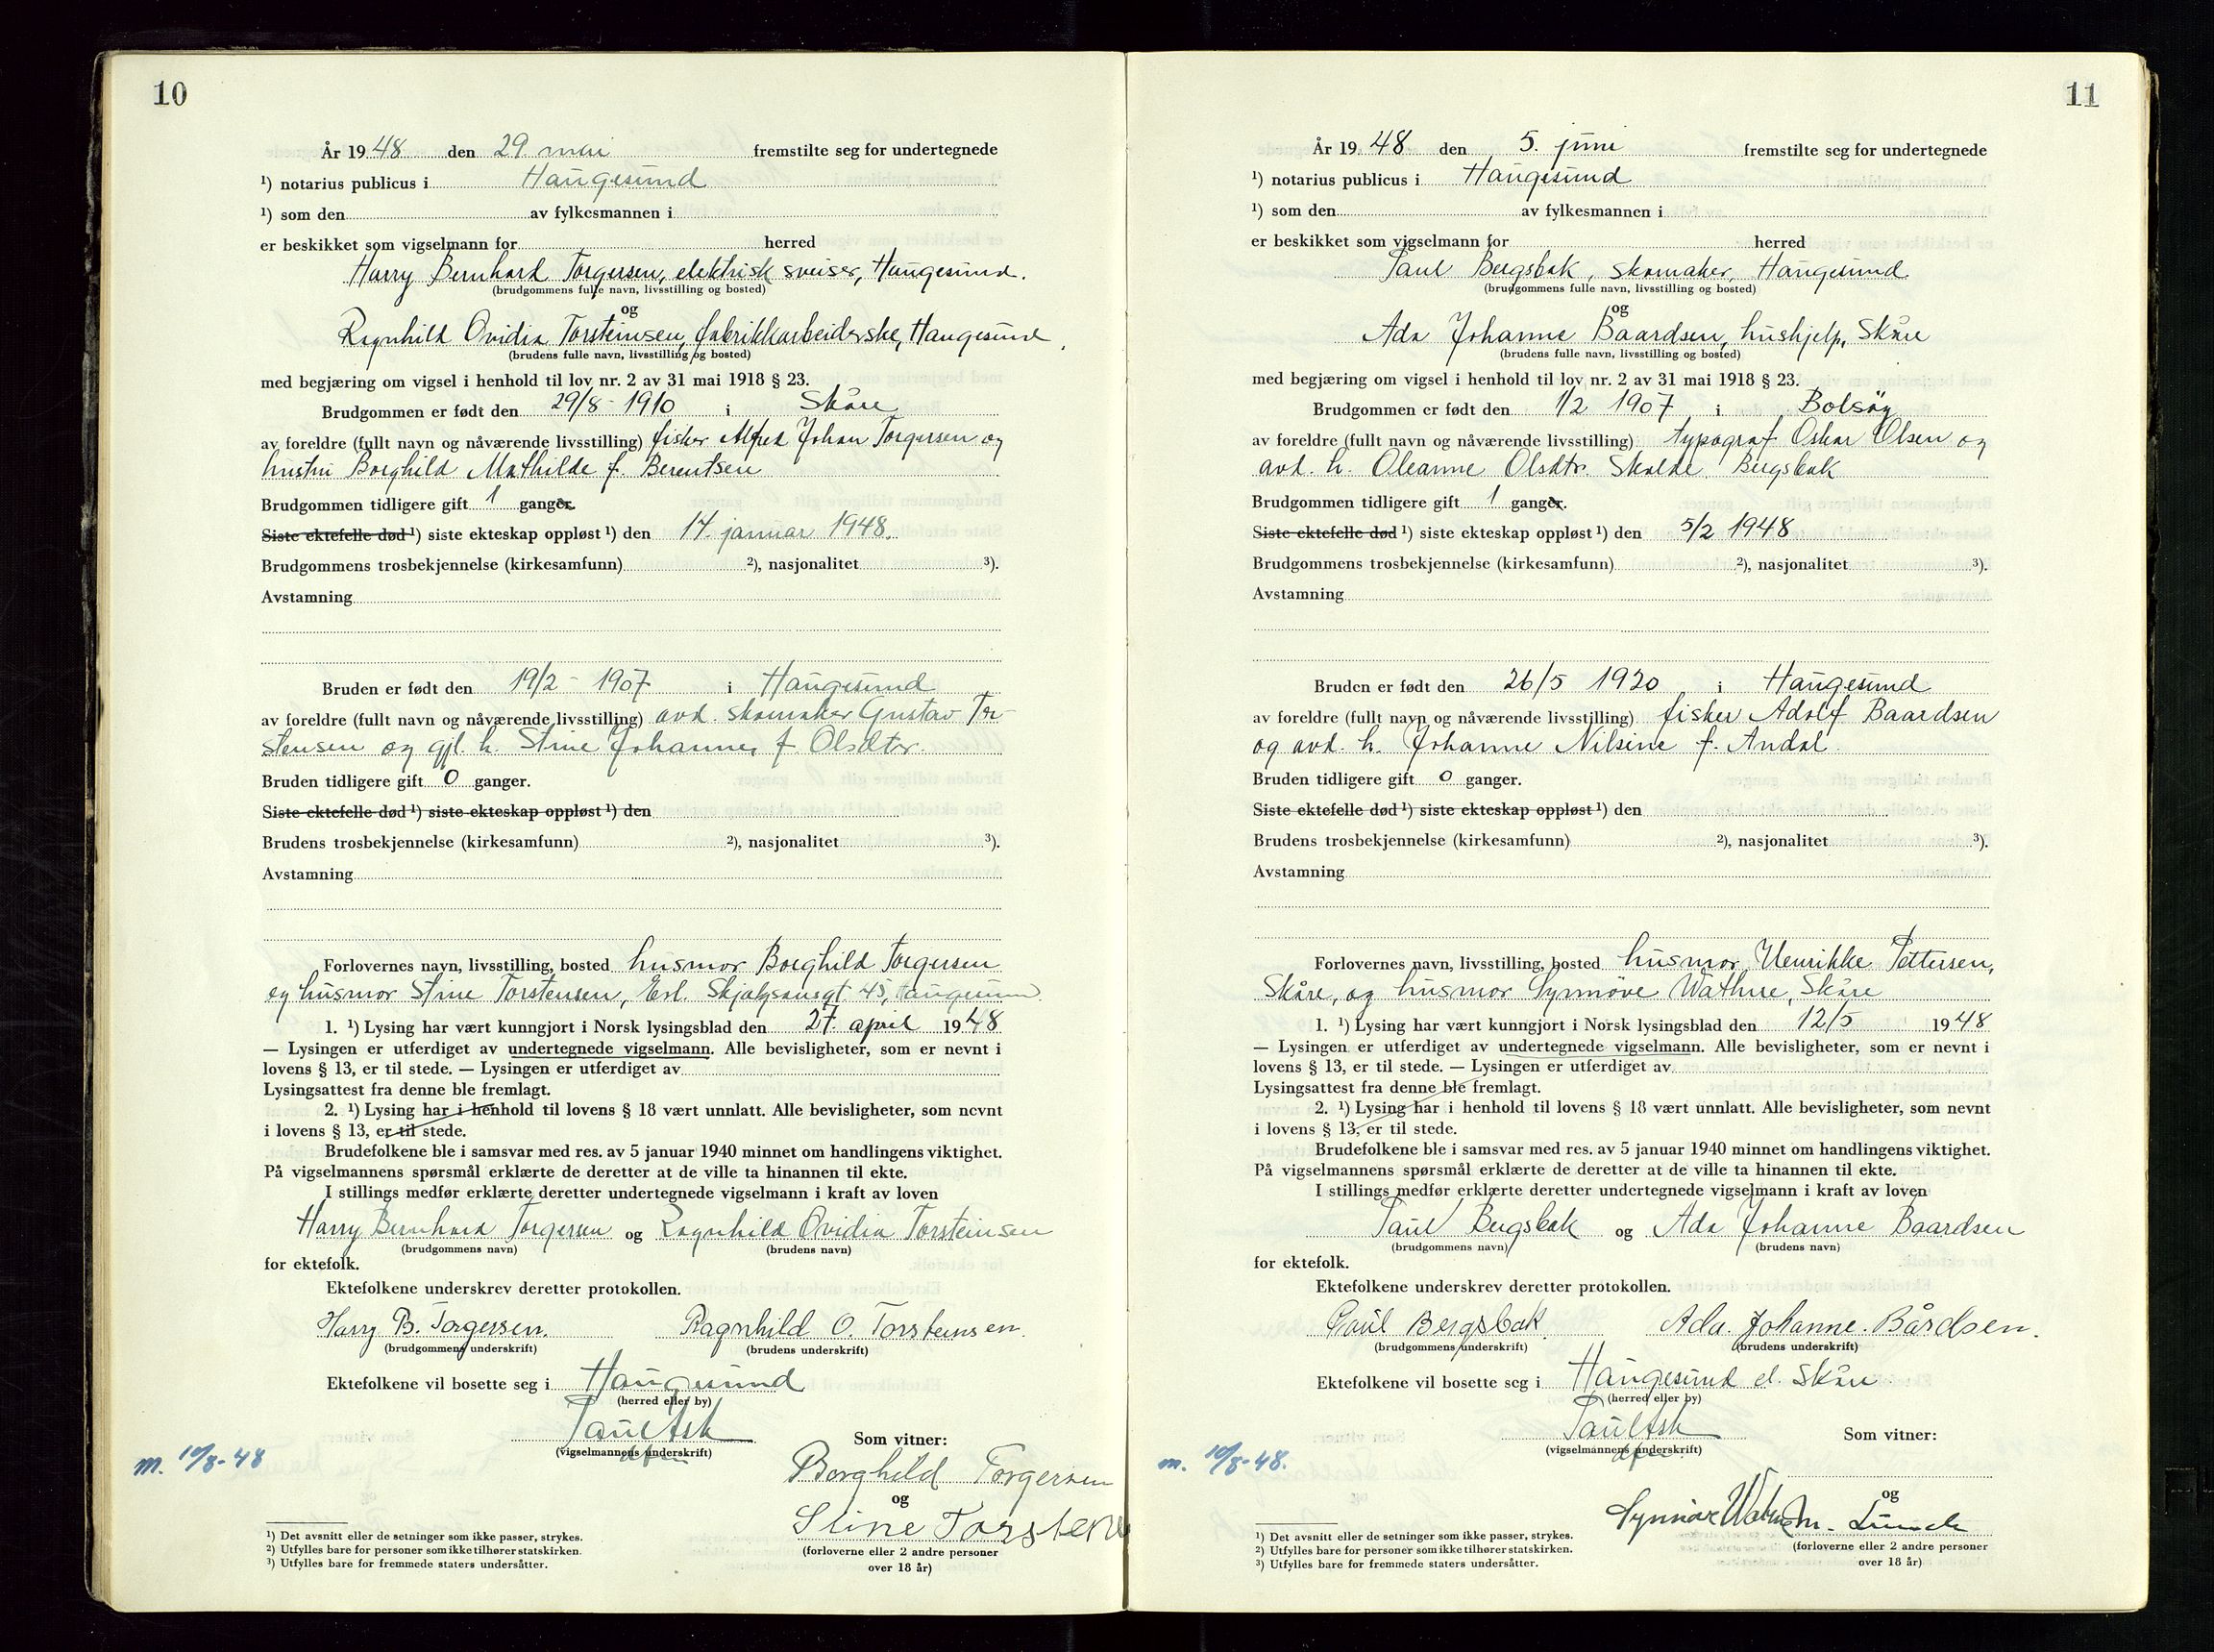 10
År 1948 den 29. mai fremstilte seg for undertegnede
¹) notarius publicus i Haugesund
¹) som den av fylkesmannen i
er beskikket som vigselmann for herred
Harry Bernhard Torgersen, elektrisk sveiser, Haugesund.
(brudgommens fulle navn, livsstilling og bosted)
og
Ragnhild Ovidia Torsteinsen, fabrikkarbeiderske, Haugesund,
(brudens fulle navn, livsstilling og bosted)
med begjæring om vigsel i henhold til lov nr. 2 av 31 mai 1918 § 23.
Brudgommen er født den 29/8 - 1910 i Skåre
av foreldre (fullt navn og nåværende livsstilling) fisker Alfred Johan Torgersen og
hustru Borghild Mathilde f. Berentsen
Brudgommen tidligere gift 1 ganger.
Siste ektefelle død ¹) siste ekteskap oppløst ¹) den 14. januar 1948.
Brudgommens trosbekjennelse (kirkesamfunn) ²), nasjonalitet ³).
Avstamning
Bruden er født den 19/2 - 1907 i Haugesund
av foreldre (fullt navn og nåværende livsstilling) avd. skomaker Gustav Tor-
stensen og gjl. h. Stine Johannes f. Olsdtr.
Bruden tidligere gift 0 ganger.
Siste ektefelle død ¹) siste ekteskap oppløst ¹) den
Brudens trosbekjennelse (kirkesamfunn) ²), nasjonalitet ³).
Avstamning
Forlovernes navn, livsstilling, bosted husmor Borghild Torgersen
og husmor Stine Torstensen, Erl. Skjalgsonsgt 45, Haugesund.
1. ¹) Lysing har vært kunngjort i Norsk lysingsblad den 27. april 1948
— Lysingen er utferdiget av undertegnede vigselmann. Alle bevisligheter, som er nevnt i
lovens § 13, er til stede. — Lysingen er utferdiget av
Lysingsattest fra denne ble fremlagt.
2. ¹) Lysing har i henhold til lovens § 18 vært unnlatt. Alle bevisligheter, som nevnt
i lovens § 13, er til stede.
Brudefolkene ble i samsvar med res. av 5 januar 1940 minnet om handlingens viktighet.
På vigselmannens spørsmål erklærte de deretter at de ville ta hinannen til ekte.
I stillings medfør erklærte deretter undertegnede vigselmann i kraft av loven
Harry Bernhard Torgersen og Ragnhild Ovidia Torsteinsen
(brudgommens navn) (brudens navn)
for ektefolk.
Ektefolkene underskrev deretter protokollen.
Harry B. Torgersen. Ragnhild O. Torsteinsen.
(brudgommens underskrift) (brudens underskrift)
Ektefolkene vil bosette seg i Haugesund
(herred eller by)
Paul Ask
(vigselmannens underskrift)
Som vitner:
m. 10/8-48
Borghild Torgersen
og
Stine Torstens
(forloverne eller 2 andre personer
over 18 år)
¹) Det avsnitt eller de setninger som ikke passer, strykes.
²) Utfylles bare for personer som ikke tilhører statskirken.
³) Utfylles bare for fremmede staters undersåtter.
11
År 1948 den 5. juni fremstilte seg for undertegnede
¹) notarius publicus i Haugesund
¹) som den av fylkesmannen i
er beskikket som vigselmann for herred
Paul Bergsbak, skomaker, Haugesund
(brudgommens fulle navn, livsstilling og bosted)
og
Ada Johanne Baardsen, hushjelp, Skåre
(brudens fulle navn, livsstilling og bosted)
med begjæring om vigsel i henhold til lov nr. 2 av 31 mai 1918 § 23.
Brudgommen er født den 1/2 1907 i Bolsøy
av foreldre (fullt navn og nåværende livsstilling) typograf Oskar Olsen og
avd. h. Oleanne Olsdtr. Skolde Bergsbak
Brudgommen tidligere gift 1 ganger.
Siste ektefelle død ¹) siste ekteskap oppløst ¹) den 5/2 1948
Brudgommens trosbekjennelse (kirkesamfunn) ²), nasjonalitet ³).
Avstamning
Bruden er født den 26/5 1920 i Haugesund
av foreldre (fullt navn og nåværende livsstilling) fisker Adolf Baardsen
og avd. h. Johanne Nilsine f. Andal.
Bruden tidligere gift 0 ganger.
Siste ektefelle død ¹) siste ekteskap oppløst ¹) den
Brudens trosbekjennelse (kirkesamfunn) ²), nasjonalitet ³).
Avstamning
Forlovernes navn, livsstilling, bosted husmor Henrikke Pettersen,
Skåre, og husmor Synnøve Wathne, Skåre
1. ¹) Lysing har vært kunngjort i Norsk lysingsblad den 12/5 1948
— Lysingen er utferdiget av undertegnede vigselmann. Alle bevisligheter, som er nevnt i
lovens § 13, er til stede. — Lysingen er utferdiget av
Lysingsattest fra denne ble fremlagt.
2. ¹) Lysing har i henhold til lovens § 18 vært unnlatt. Alle bevisligheter, som nevnt
i lovens § 13, er til stede.
Brudefolkene ble i samsvar med res. av 5 januar 1940 minnet om handlingens viktighet.
På vigselmannens spørsmål erklærte de deretter at de ville ta hinannen til ekte.
I stillings medfør erklærte deretter undertegnede vigselmann i kraft av loven
Paul Bergsbak og Ada Johanne Baardsen
(brudgommens navn) (brudens navn)
for ektefolk.
Ektefolkene underskrev deretter protokollen.
Paul Bergsbak. Ada. Johanne. Bårdsen.
(brudgommens underskrift) (brudens underskrift)
Ektefolkene vil bosette seg i Haugesund el. Skåre
(herred eller by)
Paul Ask
(vigselmannens underskrift)
Som vitner:
m. 10/8-48.
og
Synnøve Wathne M. Lunde
(forloverne eller 2 andre personer
over 18 år)
¹) Det avsnitt eller de setninger som ikke passer, strykes.
²) Utfylles bare for personer som ikke tilhører statskirken.
³) Utfylles bare for fremmede staters undersåtter.